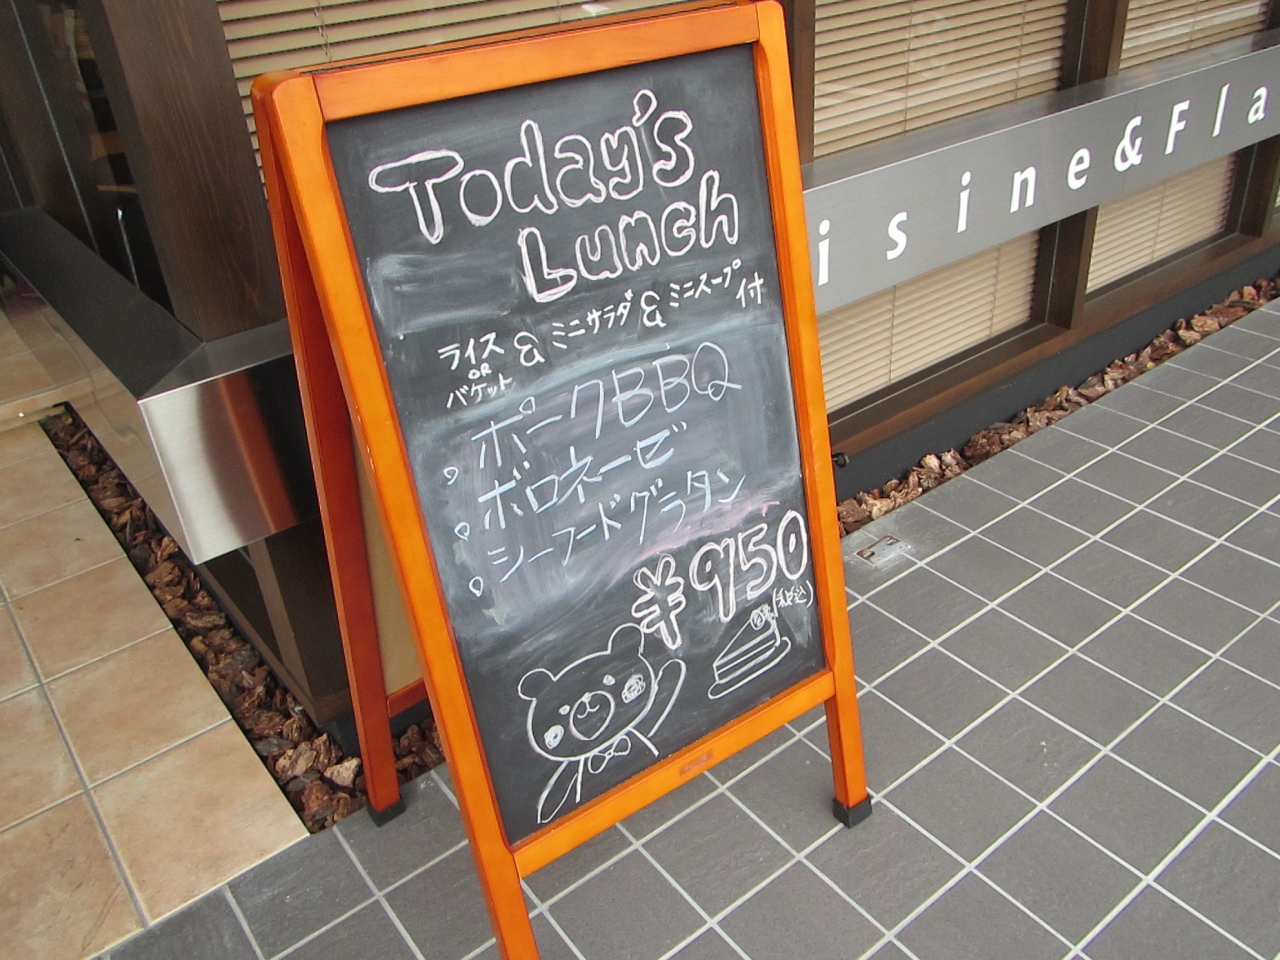 Today's
Lunch
ライス OR バケット & ミニサラダ & ミニスープ 付
ポークBBQ
ボロネーゼ
シーフードグラタン
¥950
(税込)
isine&Fla